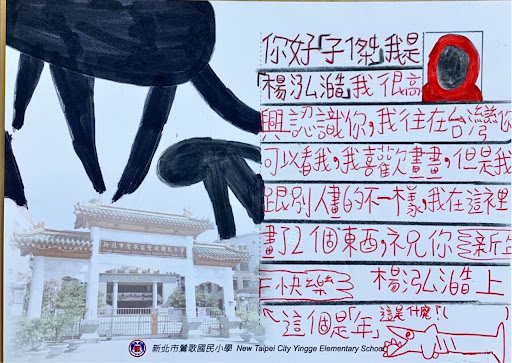 你好「子傑」我是
「楊泓澔」我很高
興認識你,我往在台灣你
可以看我,我喜歡畫畫,但是我
跟別人畫的不一樣,我在這裡
畫了2個東西,祝你新年
快樂 楊泓澔上
這個是「年」 這是什麼?!
新北市鶯歌國民小學 New Taipei City Yingge Elementary School